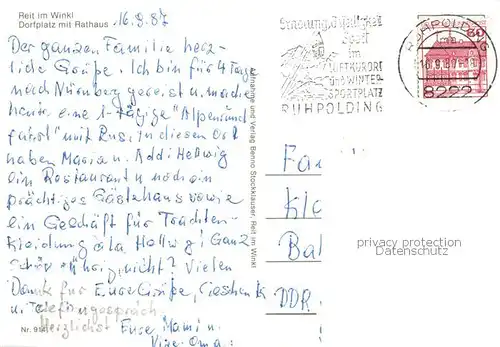 Reit im Winkl
Dorfplatz mit Rathaus
16.9.87
Der ganzen Familie herz-
liche Grüße. Ich bin für 4 Tage
nach Nürnberg gereist u. mache
heute eine 1-tägige "Alpenrund
fahrt" mit Bus, in diesem Ort
haben Maria u. Addi Hellwig
ein Restaurant u. noch ein
prächtiges Gästehaus sowie
ein Geschäft für Trachten-
kleidung a la Hellwig! Ganz
schön nicht? Vielen
Dank für Eure Grüße, Geschenk
u. Telefongespräch.
Herzlichst Eure Mami u.
Oma
Nr. 914
und Verlag Benno Stockklauser, Reit im Winkl
Erholung
Sport
im
LUFTKURORT
UND WINTER
SPORTPLATZ
RUHPOLDING
RUHPOLDING
8222
60
Fa
Kl
Ba
DDR
privacy protection
Datenschutz